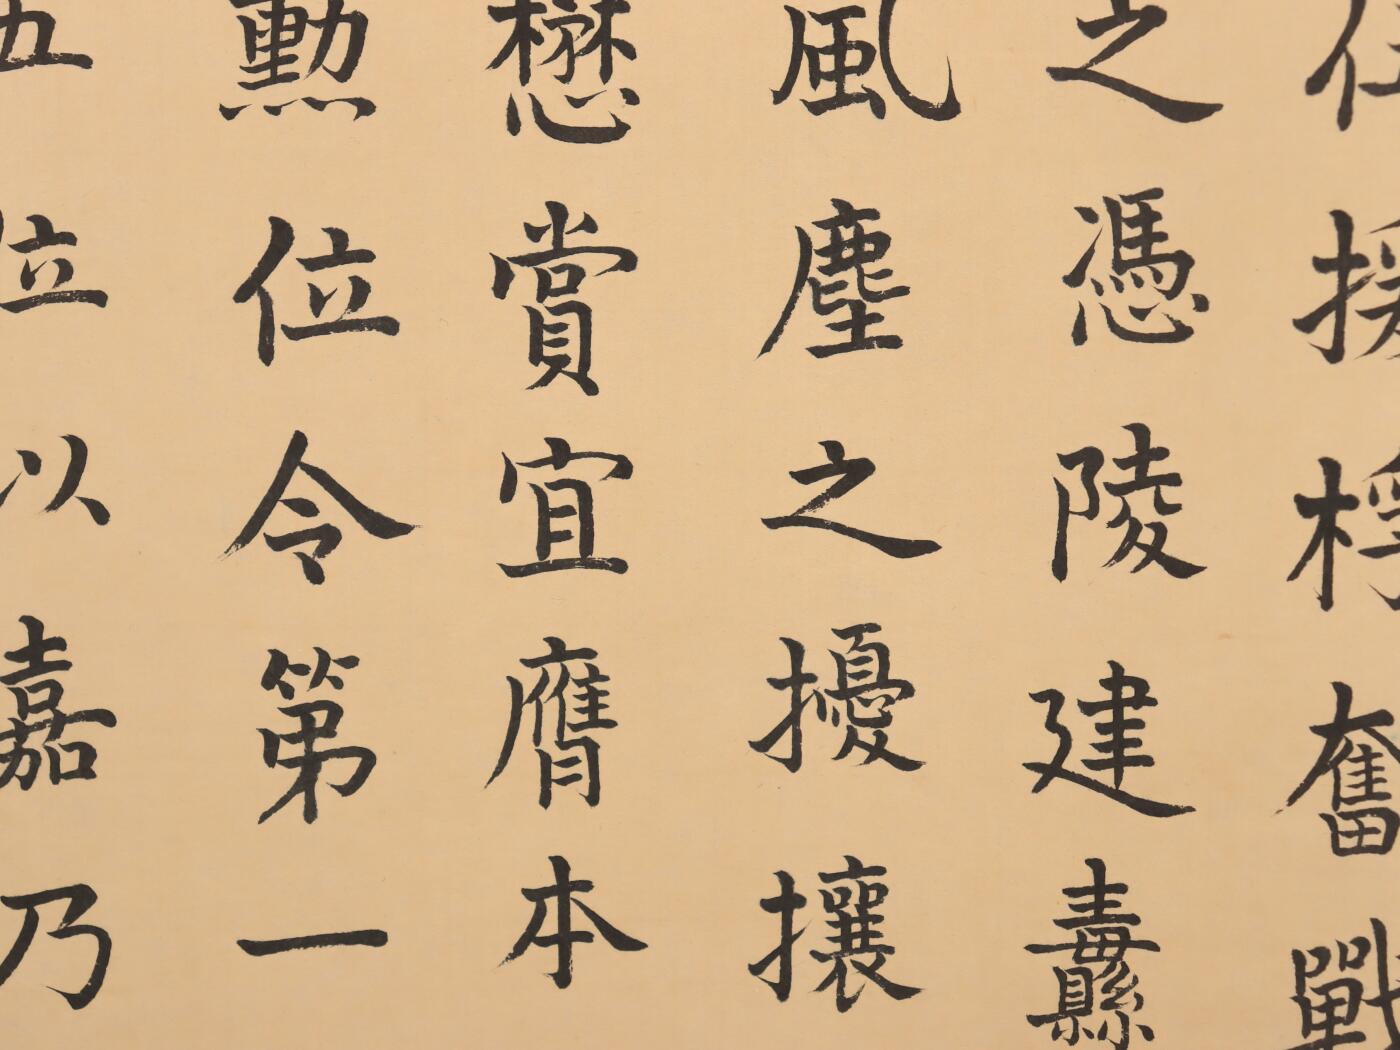 援桴奮戰
之憑陵建纛
風塵之擾攘
懋賞宜膺本
勲位令第一
五位以嘉乃